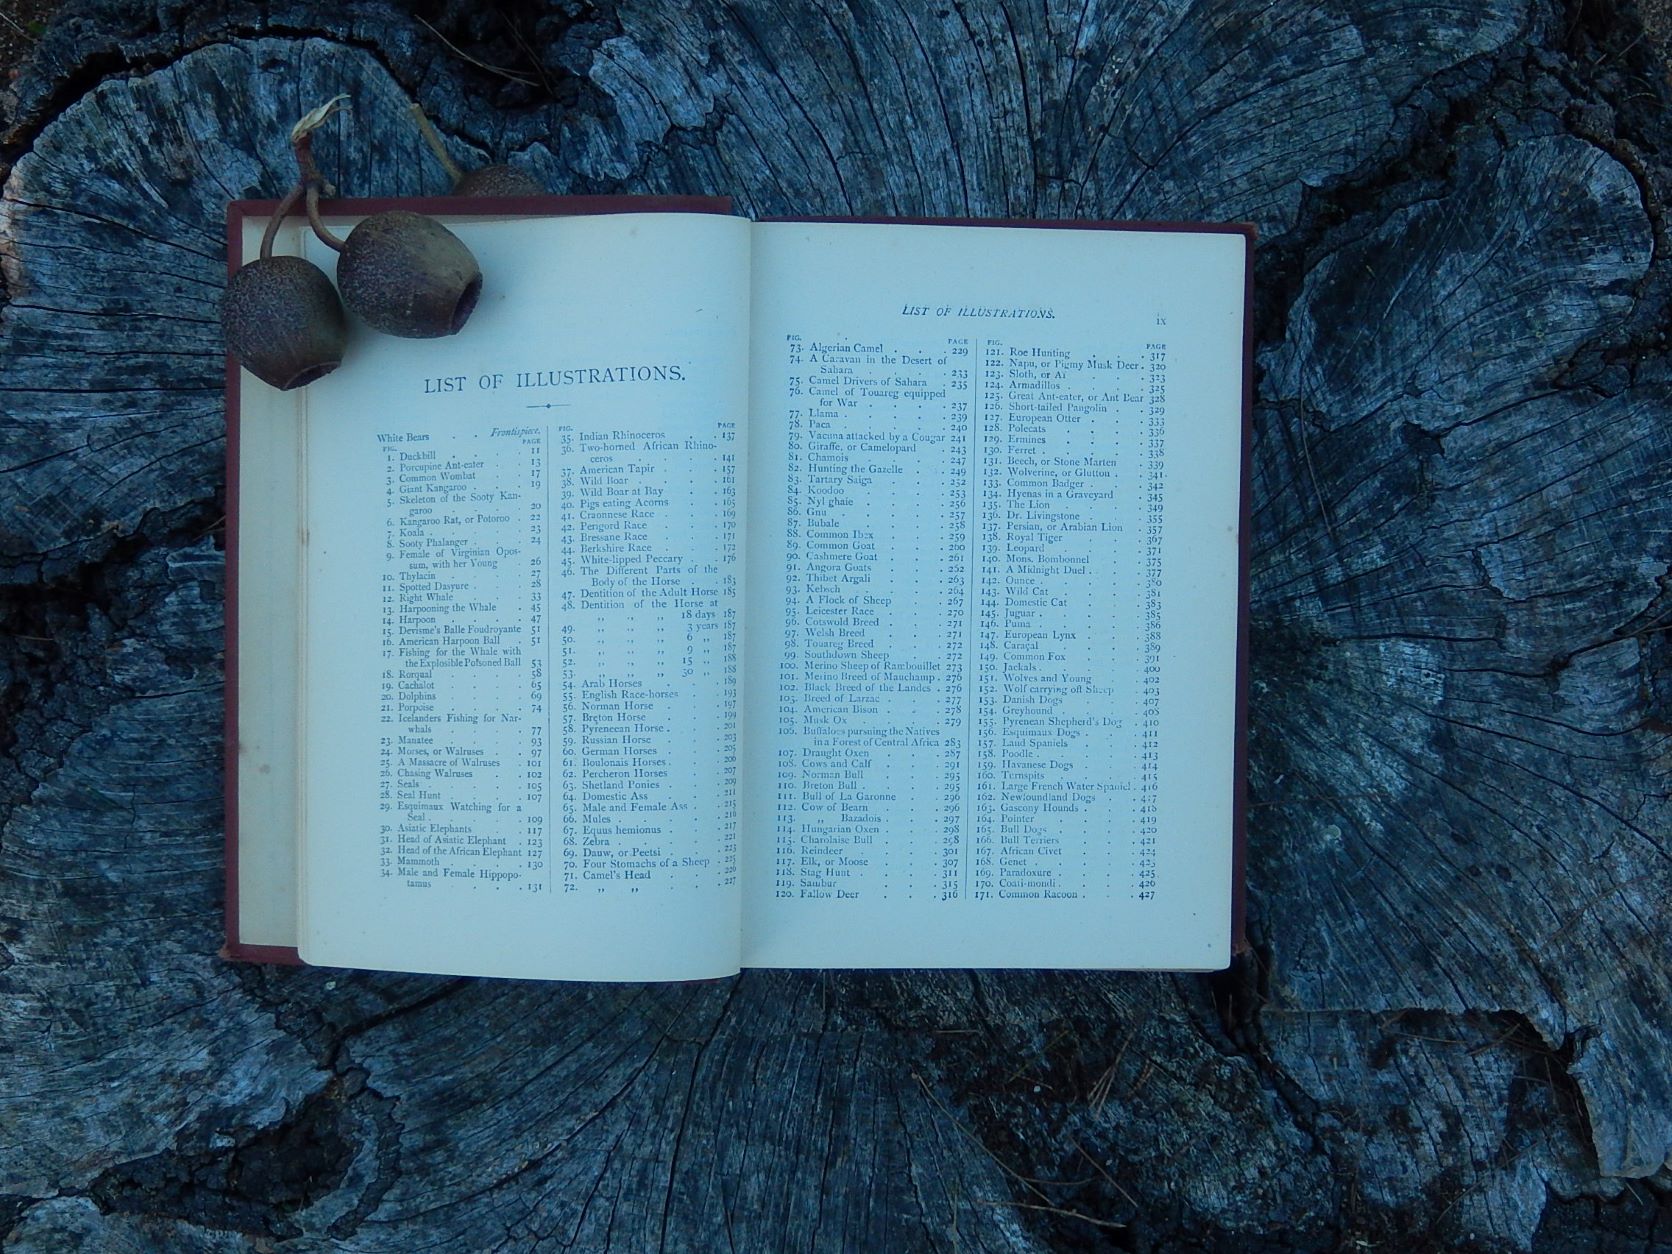 LIST OF ILLUSTRATIONS.
White Bears . . Frontispiece.
FIG. PAGE
1. Duckbill . . . . 11
2. Porcupine Ant-eater . . 13
3. Common Wombat . . 17
4. Giant Kangaroo . . . 19
5. Skeleton of the Sooty Kan-
garoo . . . . 20
6. Kangaroo Rat, or Potoroo . 22
7. Koala . . . . . 23
8. Sooty Phalanger . . . 24
9. Female of Virginian Opos-
sum, with her Young . 26
10. Thylacin . . . . 27
11. Spotted Dasyure . . . 28
12. Right Whale . . . 33
13. Harpooning the Whale . 45
14. Harpoon . . . . 47
15. Devisme's Balle Foudroyante 51
16. American Harpoon Ball . 51
17. Fishing for the Whale with
the Explosible Poisoned Ball 53
18. Rorqual . . . . 58
19. Cachalot . . . . 65
20. Dolphins . . . . 69
21. Porpoise . . . . 74
22. Icelanders Fishing for Nar-
whals . . . . 77
23. Manatee . . . . 93
24. Morses, or Walruses . . 97
25. A Massacre of Walruses . 101
26. Chasing Walruses . . 102
27. Seals . . . . . 105
28. Seal Hunt . . . . 107
29. Esquimaux Watching for a
Seal . . . . . 109
30. Asiatic Elephants . . 117
31. Head of Asiatic Elephant . 123
32. Head of the African Elephant 127
33. Mammoth . . . . 130
34. Male and Female Hippopo-
tamus . . . . 131
FIG. PAGE
35. Indian Rhinoceros . . 137
36. Two-horned African Rhino-
ceros . . . . 141
37. American Tapir . . . 157
38. Wild Boar . . . . 161
39. Wild Boar at Bay . . 163
40. Pigs eating Acorns . . 165
41. Craonnese Race . . . 169
42. Perigord Race . . . 170
43. Bressane Race . . . 171
44. Berkshire Race . . . 172
45. White-lipped Peccary . . 176
46. The Different Parts of the
Body of the Horse . . 183
47. Dentition of the Adult Horse 185
48. Dentition of the Horse at
,, ,, ,, 18 days 187
49. ,, ,, ,, 3 years 187
50. ,, ,, ,, 6 ,, 187
51. ,, ,, ,, 9 ,, 187
52. ,, ,, ,, 15 ,, 188
53. ,, ,, ,, 30 ,, 188
54. Arab Horses . . . 189
55. English Race-horses . . 193
56. Norman Horse . . . 197
57. Breton Horse . . . 199
58. Pyreneean Horse . . . 201
59. Russian Horse . . . 203
60. German Horses . . . 205
61. Boulonais Horses . . . 206
62. Percheron Horses . . 207
63. Shetland Ponies . . . 209
64. Domestic Ass . . . 211
65. Male and Female Ass . . 215
66. Mules . . . . . 216
67. Equus hemionus . . . 217
68. Zebra . . . . . 221
69. Dauw, or Peetsi . . . 223
70. Four Stomachs of a Sheep . 225
71. Camel's Head . . . 226
72. ,, ,, . . . 227
LIST OF ILLUSTRATIONS. ix
FIG. PAGE
73. Algerian Camel . . . 229
74. A Caravan in the Desert of
Sahara . . . . 233
75. Camel Drivers of Sahara . 235
76. Camel of Touareg equipped
for War . . . . 237
77. Llama . . . . . 239
78. Paca . . . . . 240
79. Vacuna attacked by a Cougar 241
80. Giraffe, or Camelopard . 243
81. Chamois . . . . 247
82. Hunting the Gazelle . . 249
83. Tartary Saiga . . . 252
84. Koodoo . . . . 253
85. Nyl ghaie . . . . 256
86. Gnu . . . . . 257
87. Bubale . . . . 258
88. Common Ibex . . . 259
89. Common Goat . . . 260
90. Cashmere Goat . . . 261
91. Angora Goats . . . 262
92. Thibet Argali . . . 263
93. Kebsch . . . . 264
94. A Flock of Sheep . . . 267
95. Leicester Race . . . 270
96. Cotswold Breed . . . 271
97. Welsh Breed . . . 271
98. Touareg Breed . . . 272
99. Southdown Sheep . . . 272
100. Merino Sheep of Rambouillet 273
101. Merino Breed of Mauchamp . 276
102. Black Breed of the Landes . 276
103. Breed of Larzac . . . 277
104. American Bison . . . 278
105. Musk Ox . . . . 279
106. Buffaloes pursuing the Natives
in a Forest of Central Africa 283
107. Draught Oxen . . . 287
108. Cows and Calf . . . 291
109. Norman Bull . . . 295
110. Breton Bull . . . . 295
111. Bull of La Garonne . . 296
112. Cow of Bearn . . . 296
113. ,, Bazadois . . . 297
114. Hungarian Oxen . . . 298
115. Charolaise Bull . . . 298
116. Reindeer . . . . 301
117. Elk, or Moose . . . 307
118. Stag Hunt . . . . 311
119. Sambur . . . . 315
120. Fallow Deer . . . 316
FIG. PAGE
121. Roe Hunting . . . 317
122. Napu, or Pigmy Musk Deer . 320
123. Sloth, or Aï . . . 323
124. Armadillos . . . . 325
125. Great Ant-eater, or Ant Bear 328
126. Short-tailed Pangolin . . 329
127. European Otter . . . 333
128. Polecats . . . . 336
129. Ermines . . . . 337
130. Ferret . . . . . 338
131. Beech, or Stone Marten . 339
132. Wolverine, or Glutton . . 341
133. Common Badger . . . 342
134. Hyenas in a Graveyard . 345
135. The Lion . . . . 349
136. Dr. Livingstone . . . 355
137. Persian, or Arabian Lion . 357
138. Royal Tiger . . . 367
139. Leopard . . . . 371
140. Mons. Bombonnel . . 375
141. A Midnight Duel . . . 377
142. Ounce . . . . . 380
143. Wild Cat . . . . 381
144. Domestic Cat . . . 383
145. Juguar . . . . . 385
146. Puma . . . . . 386
147. European Lynx . . . 388
148. Caraçal . . . . 389
149. Common Fox . . . 391
150. Jackals . . . . 400
151. Wolves and Young . . 402
152. Wolf carrying off Sheep . 403
153. Danish Dogs . . . 407
154. Greyhound . . . . 408
155. Pyrenean Shepherd's Dog . 410
156. Esquimaux Dogs . . . 411
157. Land Spaniels . . . 412
158. Poodle . . . . . 413
159. Havanese Dogs . . . 414
160. Turnspits . . . . 415
161. Large French Water Spaniel . 416
162. Newfoundland Dogs . . 417
163. Gascony Hounds . . . 418
164. Pointer . . . . 419
165. Bull Dogs . . . . 420
166. Bull Terriers . . . 421
167. African Civet . . . 424
168. Genet . . . . . 425
169. Paradoxure . . . . 425
170. Coati-mondi . . . . 426
171. Common Racoon . . . 427